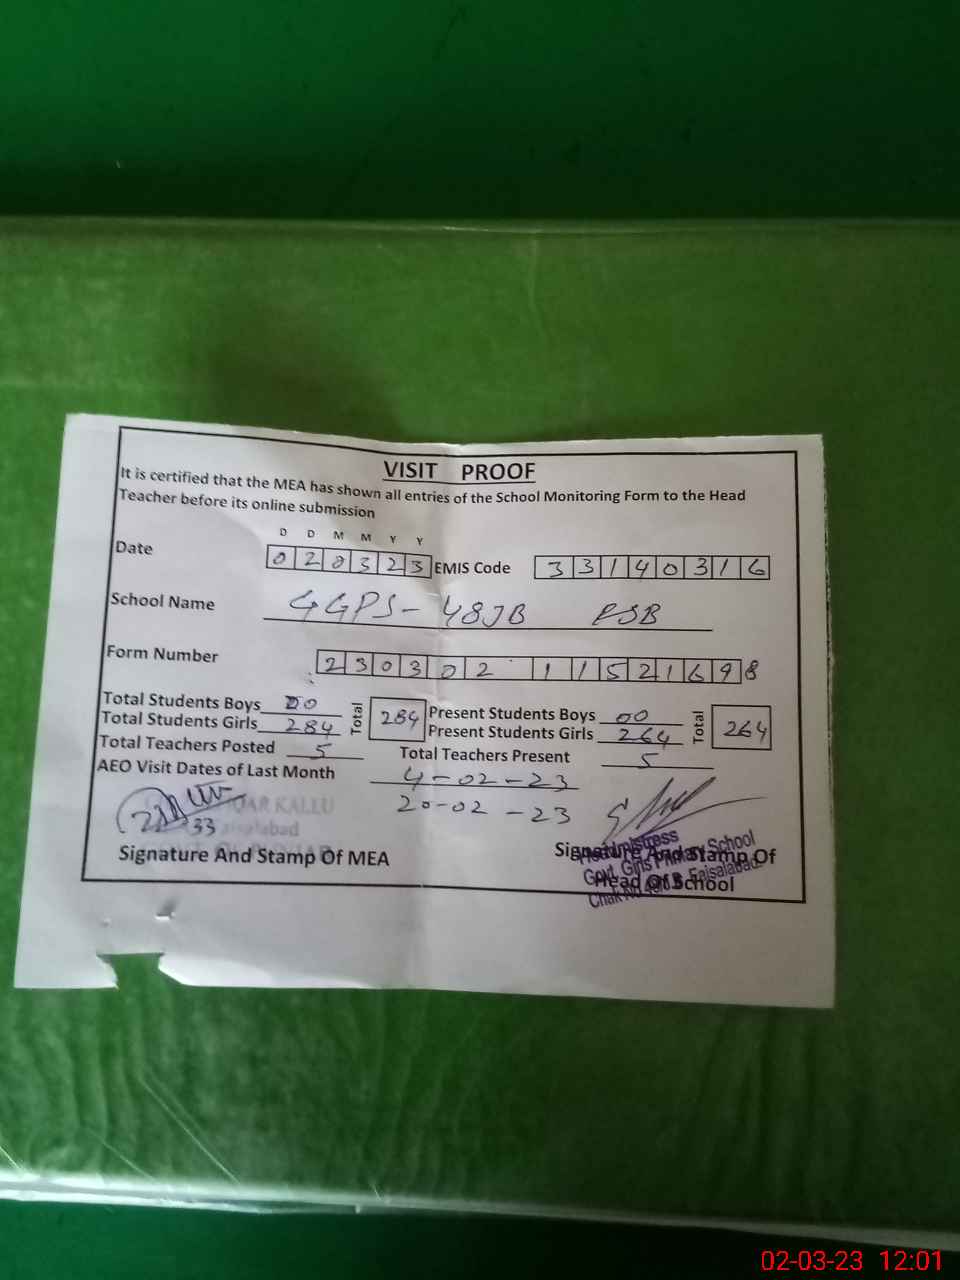 VISIT PROOF
It is certified that the MEA has shown all entries of the School Monitoring Form to the Head
Teacher before its online submission
D D M M Y Y
Date 020323 EMIS Code 33140316
School Name GGPS-48JB PSB
Form Number 230302 11521698
Total Students Boys 00 Total 284 Present Students Boys 00 Total 264
Total Students Girls 284 Present Students Girls 264
Total Teachers Posted 5 Total Teachers Present 5
AEO Visit Dates of Last Month 4-02-23
20-02-23
KALLU
33 Faisalabad
Signature And Stamp Of MEA
Signature And Stamp Of
Head Of School
Headmistress
Govt. Girls Primary School
Chak No Faisalabad.
02-03-23 12:01